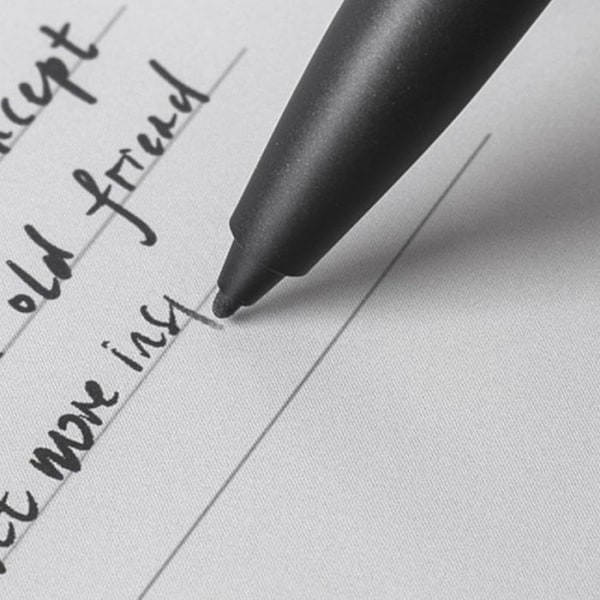 ncept
old friend
more ins